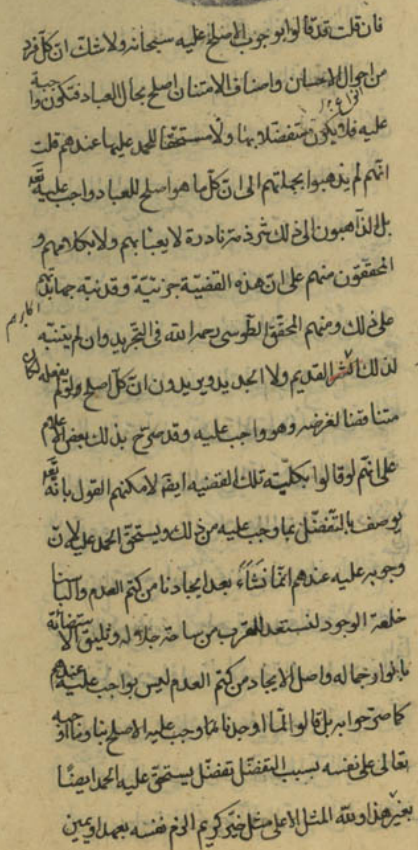 فان قلت قد قالوا بوجوب الاصلح عليه سبحانه ولا شك ان كل فرد
من احوال الاحسان واصناف الامتنان اصلح بحال للعباد فتكون واجبة
انواع
عليه فلا يكون متفضلا بها ولا مستحقا للحمد عليها عندهم قلت
انهم لم يذهبوا بجملتهم الى ان كل ما هو اصلح للعباد واجب عليه تعالى
بل الذاهبون الى ذلك شرذمة نادرة لا يعبأ بهم ولا بكلامهم و
المحققون منهم على ان هذه القضية جزئية وقد نبه جماهيرهم
على ذلك ومنهم المحقق الطوسي رحمه الله في التجريد وان لم يتنبه
لذلك الشارح القديم ولا الجديد ويريدون ان كل اصلح ولو لم يفعله لكان
متناقضا لغرضه وهو واجب عليه وقد صرح بذلك بعض الاعلام
على انهم لو قالوا بكلية تلك القضية ايضا لامكنهم القول بانه تعالى
يوصف بالتفضل بما وجب عليه من ذلك ويستحق الحمد عليه لان
وجوبه عليه عندهم انما نشأ بعد ايجادنا من كتم العدم والباسنا
خلعة الوجود لنستعد للقرب من ساحة جلاله ونليق الاستضائة
بانوار جماله واصل الايجاد من كتم العدم ليس بواجب عليه عندهم
كما صرحوا به بل قالوا لما اوجدنا وجب عليه الاصلح بنا وما اوجبه
تعالى على نفسه بسبب التفضل تفضل يستحق عليه الحمد ايضا
بغير هذا ولله المثل الاعلى مثل خير كريم الزم نفسه بعهد او يمين